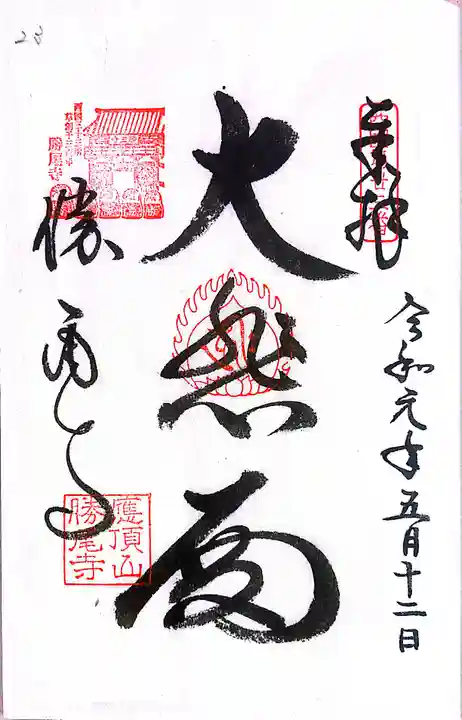 奉拝
令和元年五月十二日
大悲殿
勝尾寺
應頂山
勝尾寺
勝尾寺
23